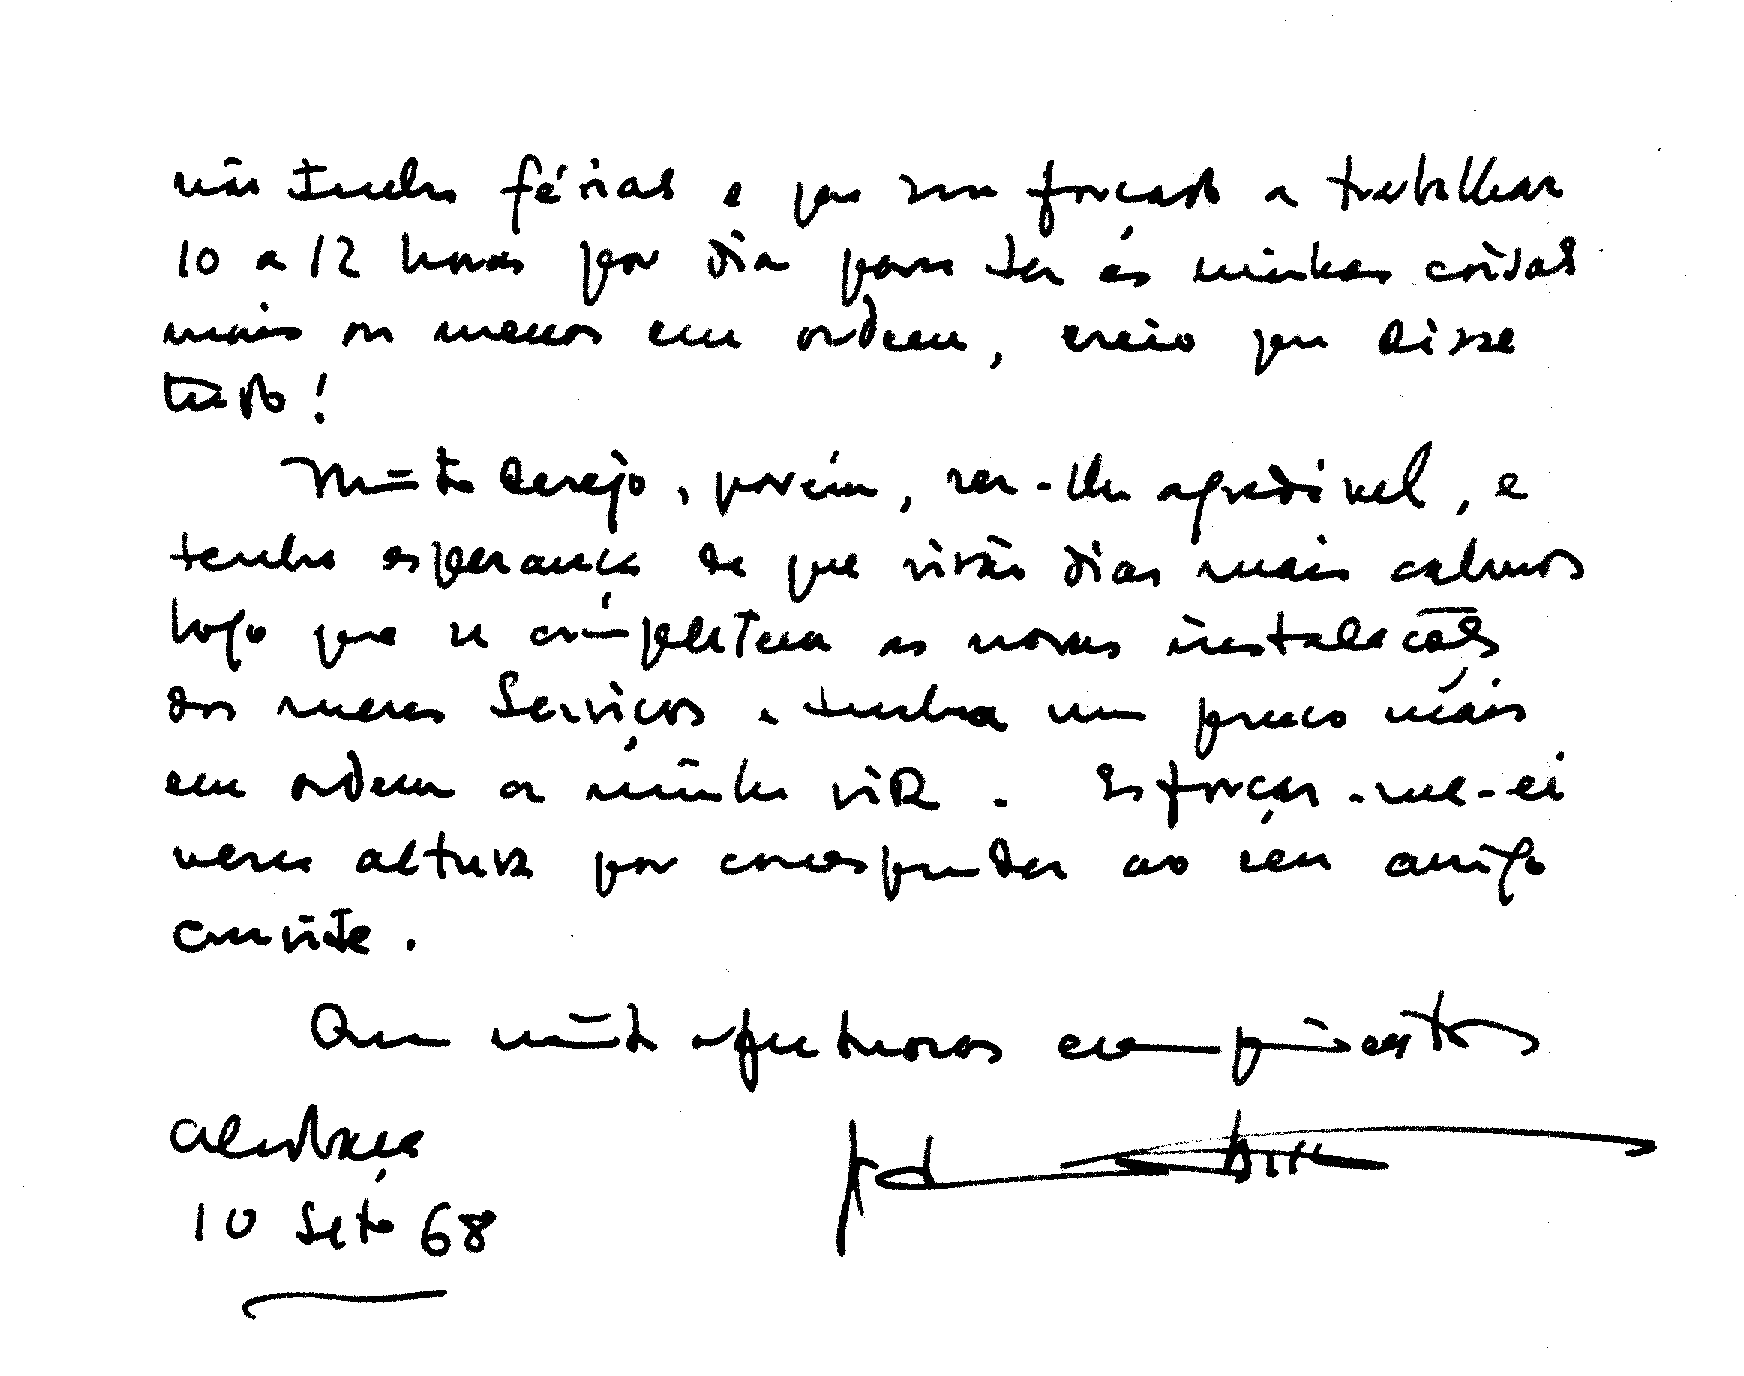 não tenho férias e que sou forçado a trabalhar
10 a 12 horas por dia para ter as minhas coisas
mais ou menos em ordem, creio que disse
tudo!
Muito desejo, porém, ser-lhe agradável, e
tenho esperança de que virão dias mais calmos
logo que se completem as novas instalações
dos meus Serviços e tenha um pouco mais
em ordem a minha vida. Esforçar-me-ei
nessa altura por corresponder ao seu amigo
convite.
Com muito afectuosos cumprimentos
Alcobaça
10 Setº 68